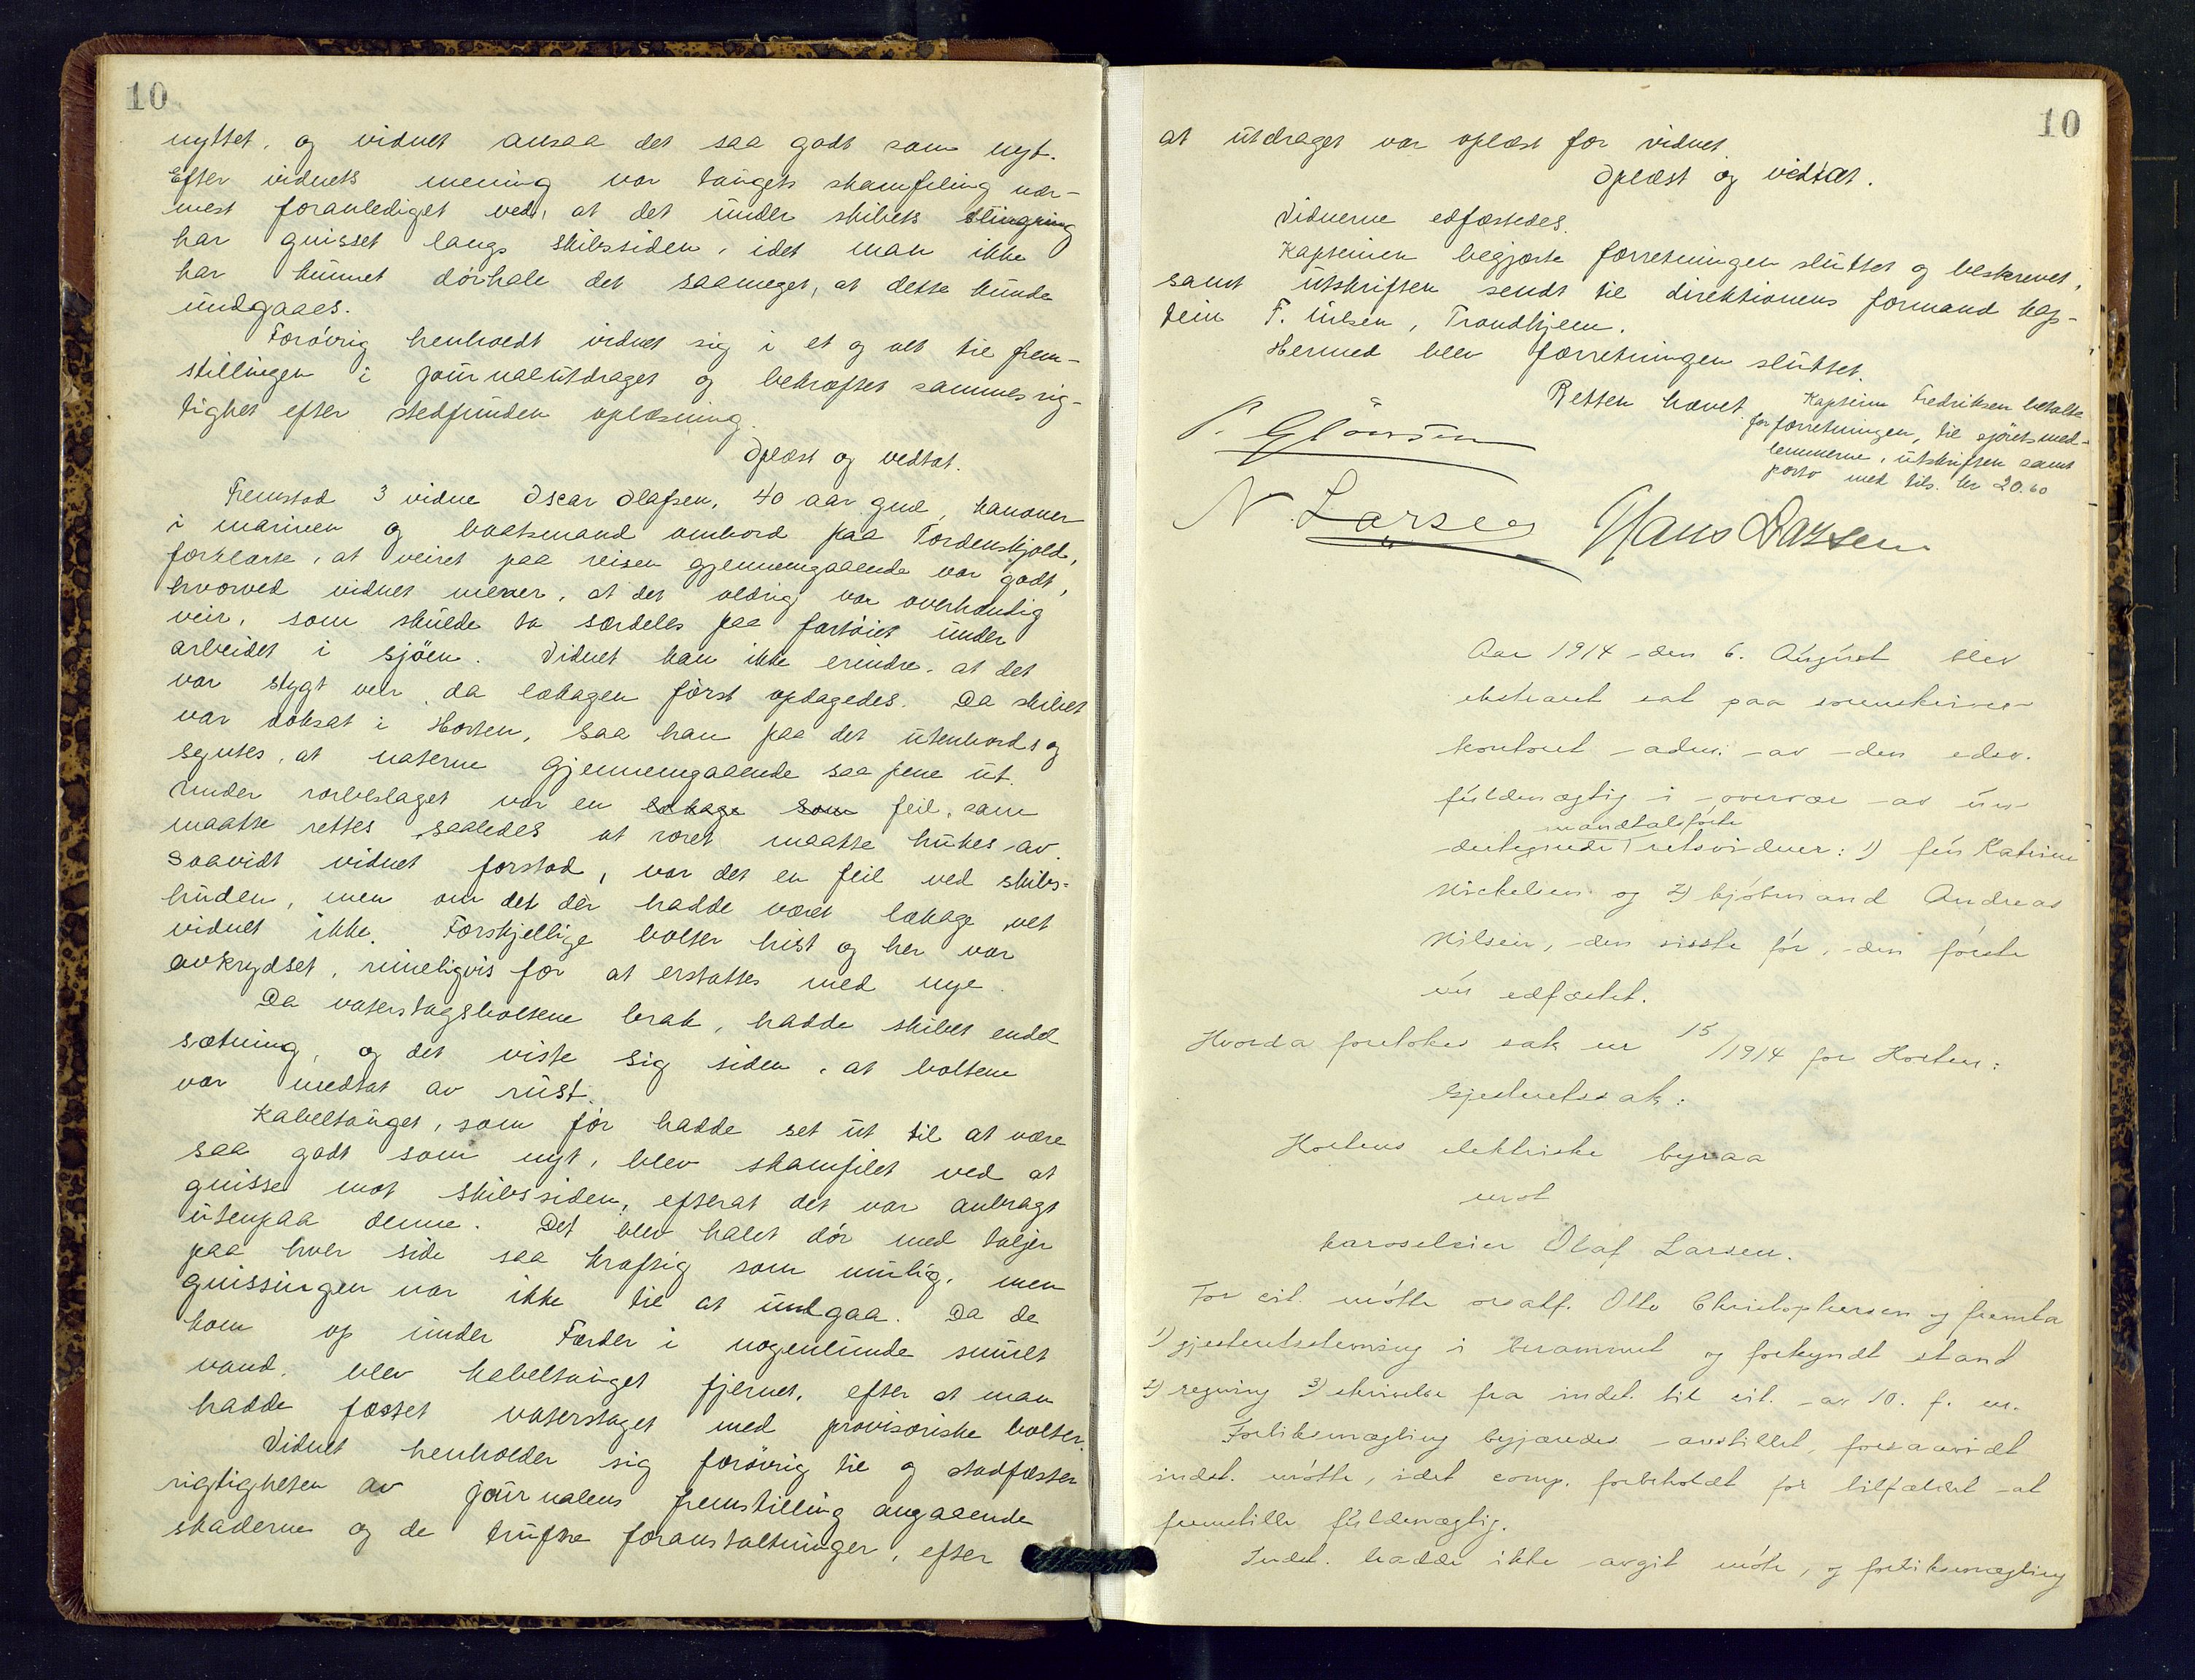 10
nyttet, og vidnet ansaa det saa godt som nyt.
Efter vidnets mening var taugets skamfiling nær-
mest foranlediget ved, at det under skibets slingring
har gnisset langs skibssiden, idet man ikke
har kunnet dørhale det saameget, at dette kunde
undgaaes.
Forøvrig henholdt vidnet sig i et og alt til frem-
stillingen i journalutdraget og bekræftet sammes rig-
tighet efter stedfunden oplæsning.
Oplæst og vedtat.
Fremstod 3 vidne Oscar Olafsen, 40 aar gml, kanoner
i marinen og baatsmand ombord paa Tordenskjold,
forklarte, at veiret paa reisen gjennemgaaende var godt,
hvorved vidnet mener, at det aldrig var overhændig
veir, som skulde ta særdeles paa fartøiet under
arbeidet i sjøen. Vidnet kan ikke erindre, at det
var stygt veir, da lækagen først opdagedes. Da skibet
var doksat i Horten, saa han paa det utenbords og
syntes, at naterne gjennemgaaende saa pene ut.
Under rorbeslaget var en lækage som feil, som
maatte rettes saaledes at roret maatte hukes av.
Saavidt vidnet forstod, var det en feil ved skibs-
huden, men om det der hadde været lækage vet
vidnet ikke. Forskjellige bolter hist og her var
avkrydset, rimeligvis for at erstattes med nye.
Da vaterstagsboltene brak, hadde skibet endel
sætning, og det viste sig siden, at boltene
var medtat av rust.
Kabeltauget, som før hadde set ut til at være
saa godt som nyt, blev skamfilet ved at
gnisse mot skibssiden, efterat det var anbragt
utenpaa denne. Det blev halet dør med taljer
paa hver side saa kraftig som mulig, men
gnissingen var ikke til at undgaa. Da de
kom op under Færder i nogenlunde smult
vand, blev kabeltauget fjernet, efter at man
hadde fæstet vaterstaget med provisoriske bolter.
Vidnet henholder sig forøvrig til og stadfæster
rigtigheten av journalens fremstilling angaaende
skaderne og de trufne foranstaltninger, efter
10
at utdraget var oplæst for vidnet.
Oplæst og vedtat.
Vidnerne edfæstedes.
Kapteinen begjærte forretningen sluttet og beskrevet,
samt utskriften sendt til direktionens formand kap-
tein F. , Trondhjem.
Hermed blev forretningen sluttet.
Retten hævet.
Kaptein Fredriksen betalte
for forretningen, til sjøretsmed-
lemmerne, utskriften samt
porto med tils. kr 20.60
P.
N. Larsen Hans Larsen
Aar 1914 den 6. August blev
ekstraret sat paa sorenskriver-
kontoret adm. av den edsv.
fuldmægtig i overvær av un-
mandtalsførte
dertegnede retsvidner: 1) frú Katrine
Mickelsen og 2) kjøbmand Andreas
Nilsen, den sisste før, den første
nú edfæstet.
Hvorda foretokes sak nr 15/1914 for Horten:
Gjesteretssak:
Hortens elektriske byraa
mot
karoselsier Olaf Larsen.
For cit. møtte orsatf. Otto Christophersen og fremla
1) gjesteretsstevning i berammet og forkyndt stand
2) regning 3) skrivelse fra indst. til cit. av 10. f. m.
Forliksmægling begjæredes anstillet, forsaavidt
indst. møtte, idet comp. forbeholdt for tilfældet at
fremstille fuldmægtig.
Indst. hadde ikke avgit møte, og forliksmægling